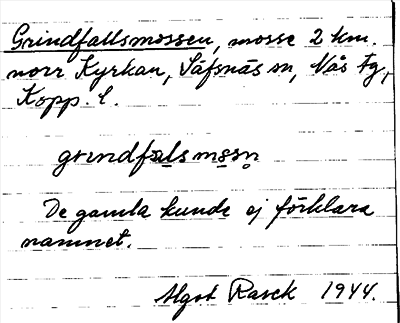 Grindfallsmossen, mosse 2 km.
norr Kyrkan, Säfsnäs sn, Nås tg,
Kopp. l.
grindfals mssn
De gamla kunde ej förklara
namnet.
Algot Rasck 1944.